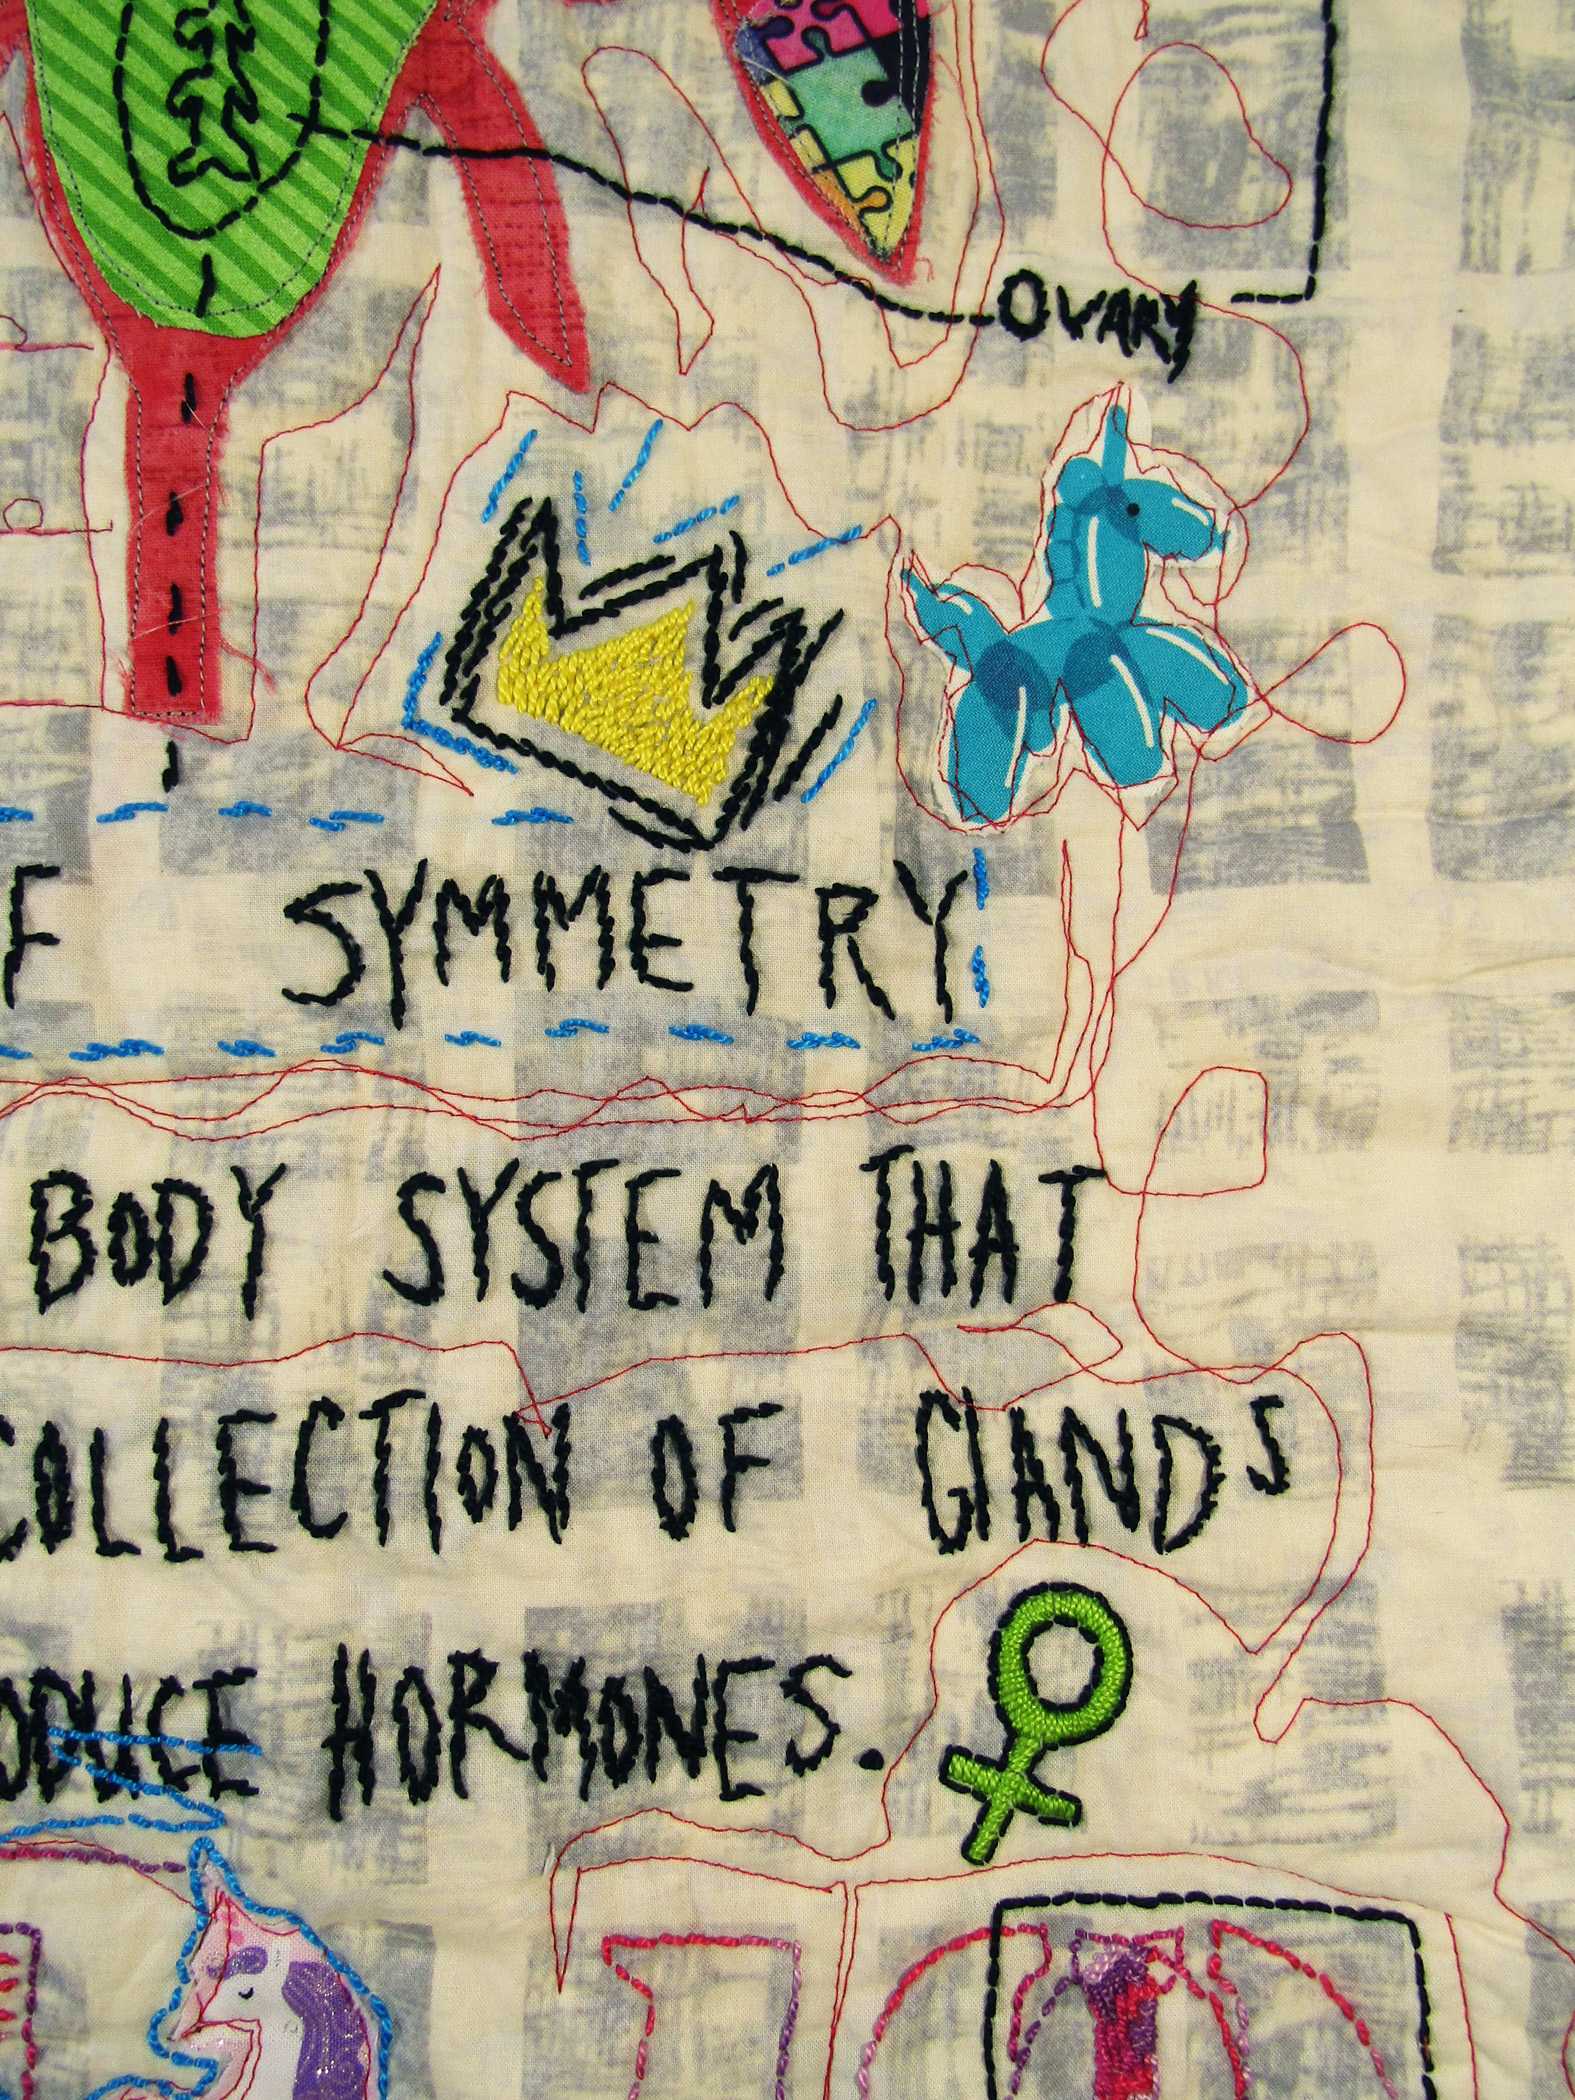 OVARY
F SYMMETRY
BODY SYSTEM THAT
COLLECTION OF GLANDS
ODUCE HORMONES.